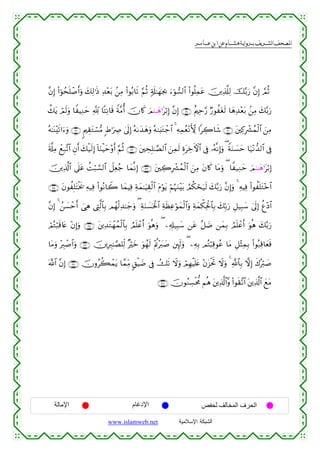 المصحف الشريف برواية هشام عن ابن عامر
ثُمَّ إِنَّ رَبَّكَ لِلَّذِينَ عَمِلُوا۟ ٱلسُّوٓءَ بِجَهَـٰلَةٍ ثُمَّ تَابُوا۟ مِنۢ بَعْدِ ذَٰلِكَ وَأَصْلَحُوٓا۟ إِنَّ
رَبَّكَ مِنۢ بَعْدِهَا لَغَفُورٌ رَّحِيمٌ إِنَّ إِبْرَٰهَـٰمَ كَانَ أُمَّةً قَانِتًا لِّلَّهِ حَنِيفًا وَلَمْ يَكُ
مِنَ ٱلْمُشْرِكِينَ شَاكِرًا لِّأَنْعُمِهِ ۚ ٱجْتَبَىٰهُ وَهَدَىٰهُ إِلَىٰ صِرَٰطٍ مُّسْتَقِيمٍ وَءَاتَيْنَـٰهُ
فِى ٱلدُّنْيَا حَسَنَةً ۖ وَإِنَّهُۥ فِى ٱلْـَٔاخِرَةِ لَمِنَ ٱلصَّـٰلِحِينَ ثُمَّ أَوْحَيْنَآ إِلَيْكَ أَنُ ٱتَّبِعْ مِلَّةَ
إِبْرَٰهَـٰمَ حَنِيفًا ۖ وَمَا كَانَ مِنَ ٱلْمُشْرِكِينَ إِنَّمَا جُعِلَ ٱلسَّبْتُ عَلَى ٱلَّذِينَ
ٱخْتَلَفُوا۟ فِيهِ ۚ وَإِنَّ رَبَّكَ لَيَحْكُمُ بَيْنَهُمْ يَوْمَ ٱلْقِيَـٰمَةِ فِيمَا كَانُوا۟ فِيهِ يَخْتَلِفُونَ
ٱدْعُ إِلَىٰ سَبِيلِ رَبِّكَ بِٱلْحِكْمَةِ وَٱلْمَوْعِظَةِ ٱلْحَسَنَةِ ۖ وَجَـٰدِلْهُم بِٱلَّتِى هِىَ أَحْسَنُ ۚ إِنَّ
رَبَّكَ هُوَ أَعْلَمُ بِمَن ضَلَّ عَن سَبِيلِهِۦ ۖ وَهُوَ أَعْلَمُ بِٱلْمُهْتَدِينَ وَإِنْ عَاقَبْتُمْ
فَعَاقِبُوا۟ بِمِثْلِ مَا عُوقِبْتُم بِهِۦ ۖ وَلَئِن صَبَرْتُمْ لَهُوَ خَيْرٌ لِّلصَّـٰبِرِينَ وَٱصْبِرْ وَمَا
صَبْرُكَ إِلَّا بِٱللَّهِ ۚ وَلَا تَحْزَنْ عَلَيْهِمْ وَلَا تَكُ فِى ضَيْقٍ مِّمَّا يَمْكُرُونَ إِنَّ ٱللَّهَ
مَعَ ٱلَّذِينَ ٱتَّقَوا۟ وَّٱلَّذِينَ هُم مُّحْسِنُونَ
الحرف المخالف لحفص الإدغام الإمالة
الشبكة الإسلامية www.islamweb.net